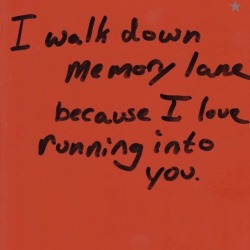 I walk down
memory lane
because I love
running into
you.